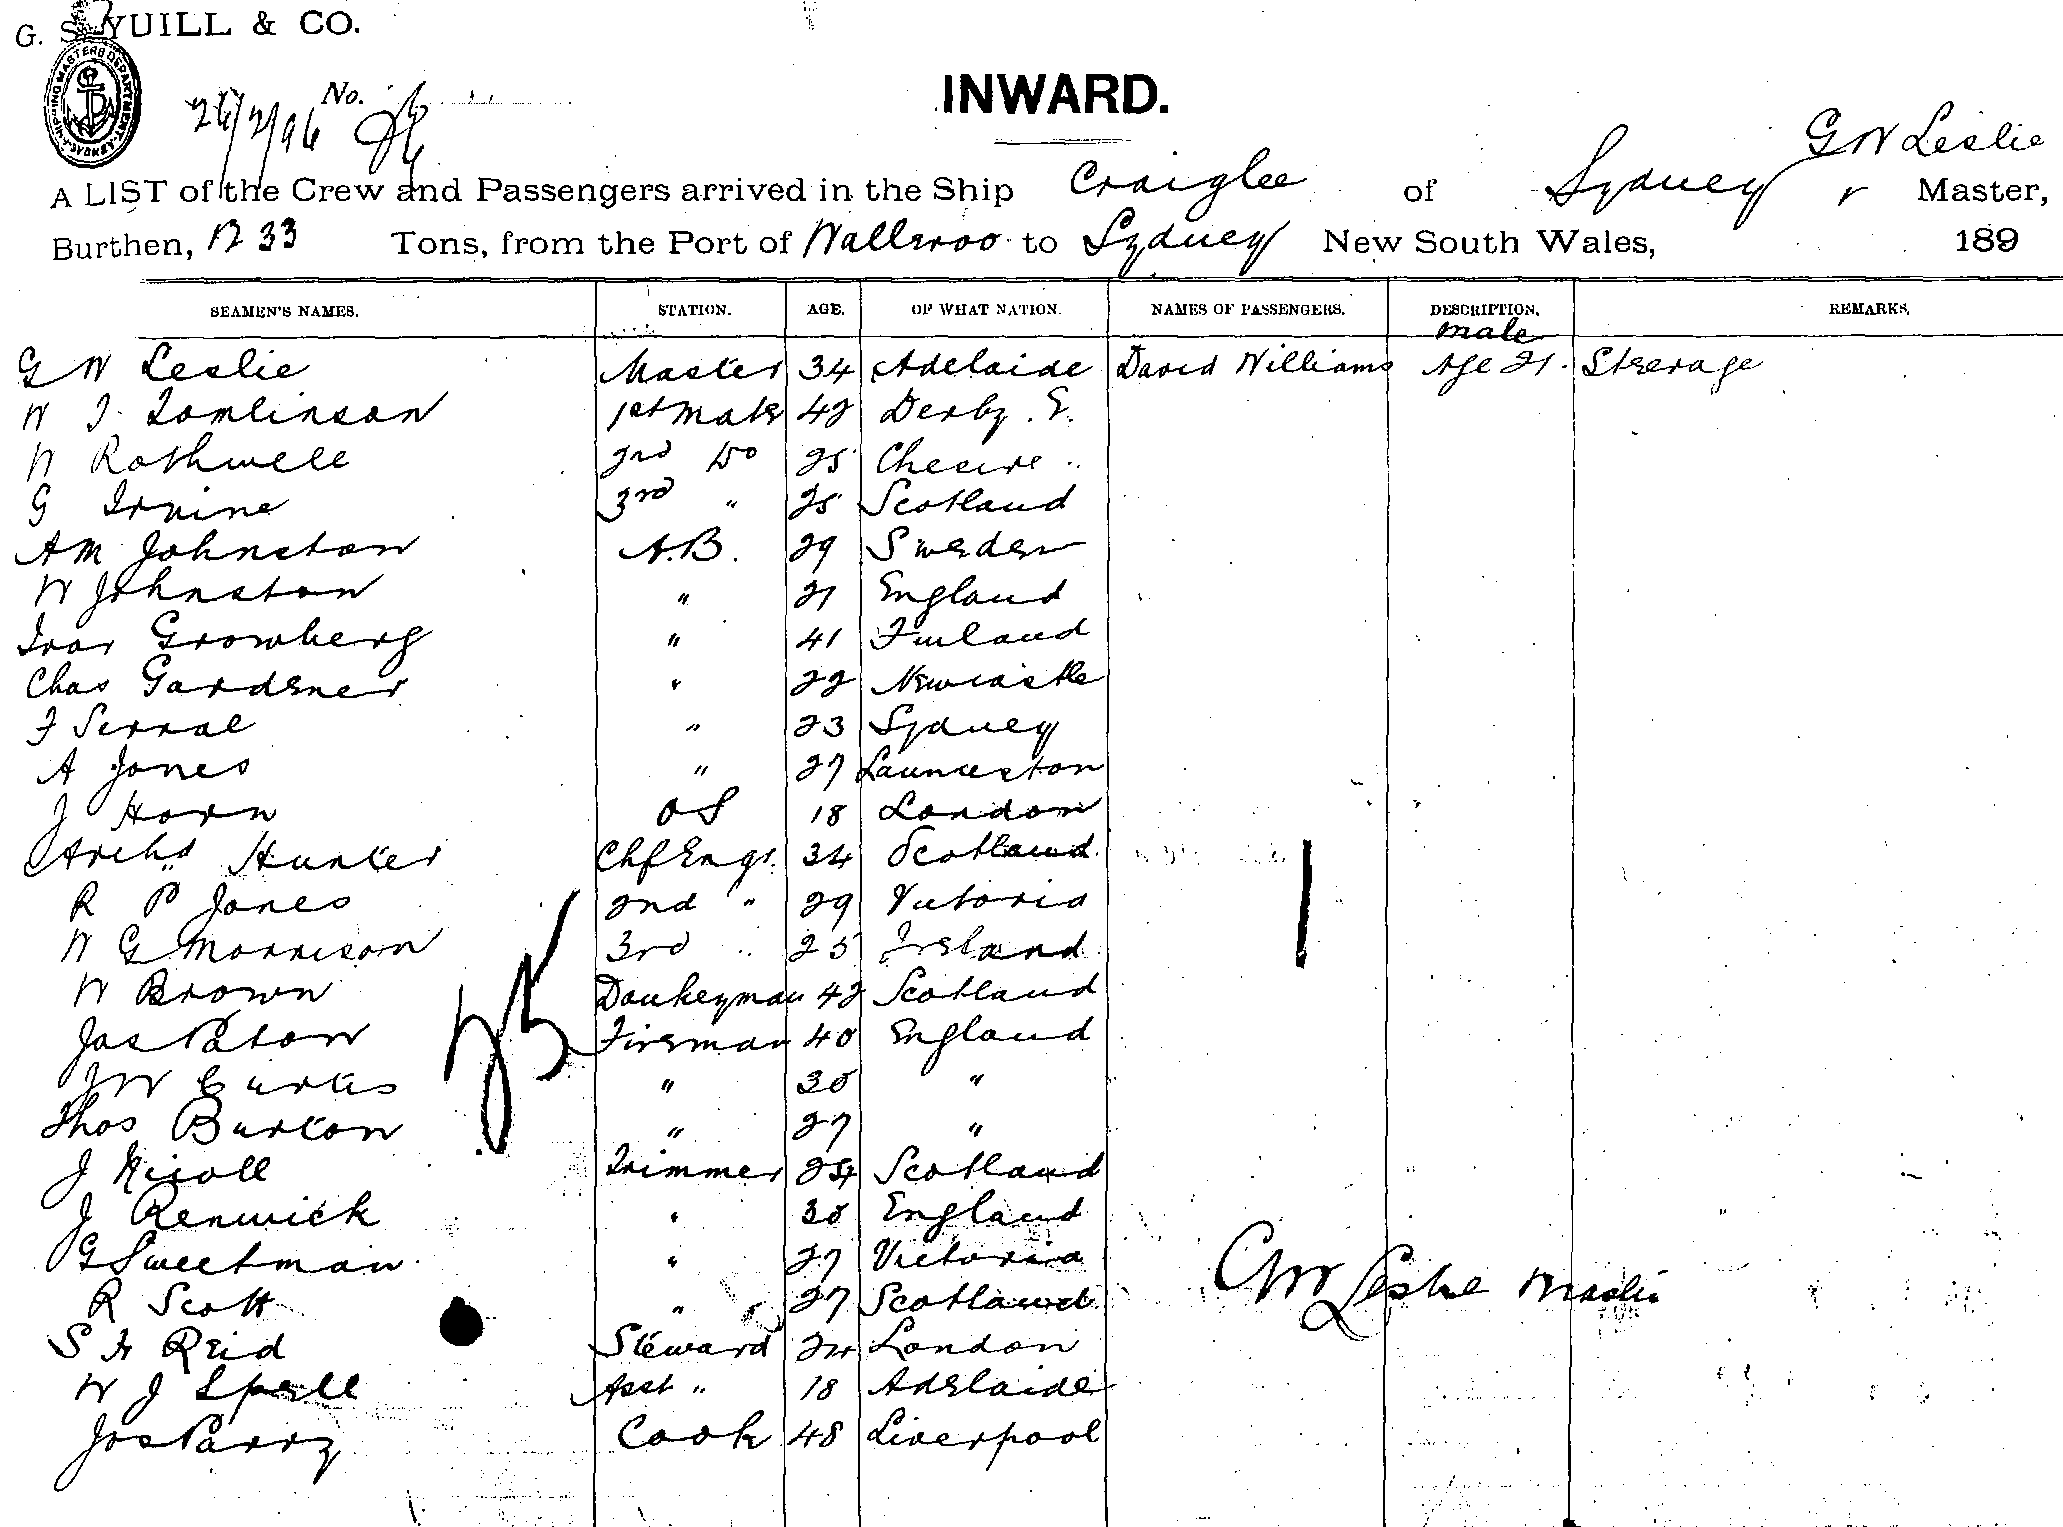 G. S. YUILL & CO.
SHIPPING MASTERS DEPARTMENT SYDNEY
No.
INWARD.
G W Leslie
A LIST of the Crew and Passengers arrived in the Ship Craiglee of Sydney, Master,
Burthen, 1233 Tons, from the Port of Wallaroo to Sydney New South Wales, 189
SEAMEN'S NAMES. STATION. AGE. OF WHAT NATION. NAMES OF PASSENGERS. DESCRIPTION. REMARKS.
male
G W Leslie Master 34 Adelaide David Williams Age 21. Steerage
W J Tomlinson 1st Mate 42 Derby. E.
W Rothwell 2nd Do 25 Chesire "
G Irvine 3rd " 25 Scotland
AM Johnston A.B. 29 Sweden
W Johnston " 21 England
Ivar Growberg " 41 Finland
Chas Gardener " 22 Newcastle
F Serral " 23 Sydney
A Jones " 27 Launceston
J Horn OS 18 London
Archd Hunter Chf Engr. 34 Scotland
R P Jones 2nd " 29 Victoria
W G Morrison 3rd " 25 Ireland
W Brown Donkeyman 42 Scotland
Jas Paton Fireman 40 England
J W Curtis " 30 "
Thos Burton " 27 "
J Nicoll Trimmer 24 Scotland
J Renwick " 30 England
G Sweetman " 27 Victoria
R Scott " 27 Scotland
G W Leslie Master
S H Reid Steward 24 London
W J Spell Asst " 18 Adelaide
Jos Parry Cook 48 Liverpool
25
1